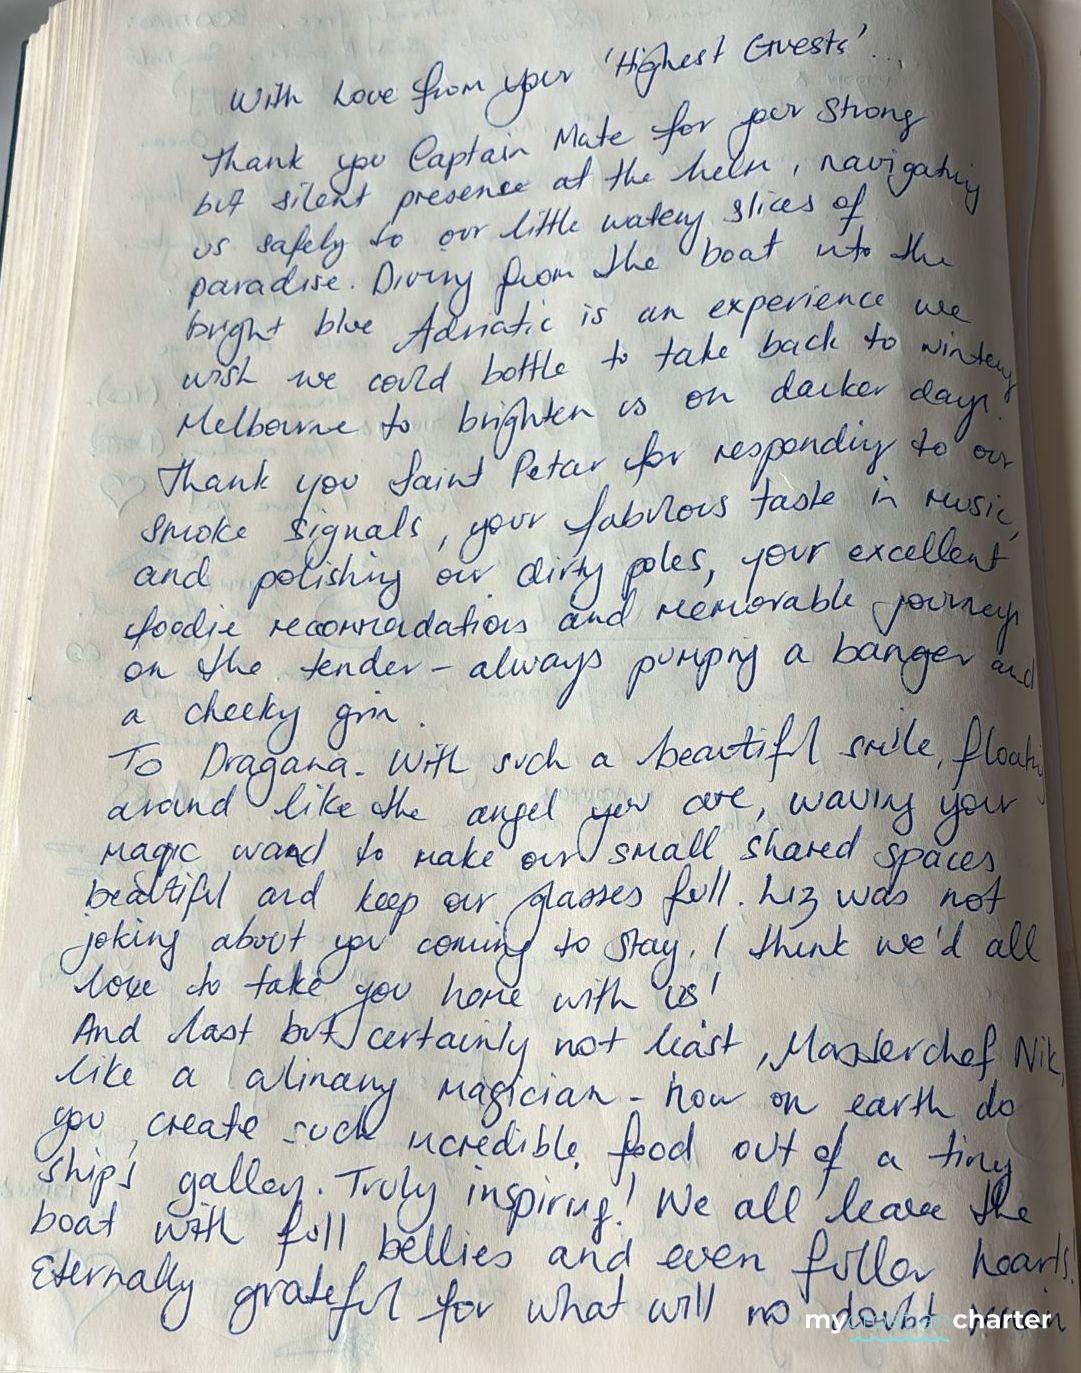 With Love from your 'Highest Guests'...
Thank you Captain Mate for your strong
but silent presence at the helm, navigating
us safely to our little watery slices of
paradise. Diving from the boat into the
bright blue Adriatic is an experience we
wish we could bottle to take back to wintery
Melbourne to brighten us on darker days.
Thank you Saint Petar for responding to our
smoke signals, your fabulous taste in music,
and polishing our dirty poles, your excellent
foodie recommendations and memorable journeys
on the tender - always pumping a banger and
a cheeky grin.
To Dragana. With such a beautiful smile, floating
around like the angel you are, waving your
magic wand to make our small shared spaces
beautiful and keep our glasses full. Liz was not
joking about you coming to stay. I think we'd all
love to take you home with us!
And last but certainly not least, Masterchef Nik,
like a culinary magician - how on earth do
you create such incredible food out of a tiny
ship's galley. Truly inspiring! We all leave the
boat with full bellies and even fuller hearts.
Eternally grateful for what will no doubt
my croatian charter